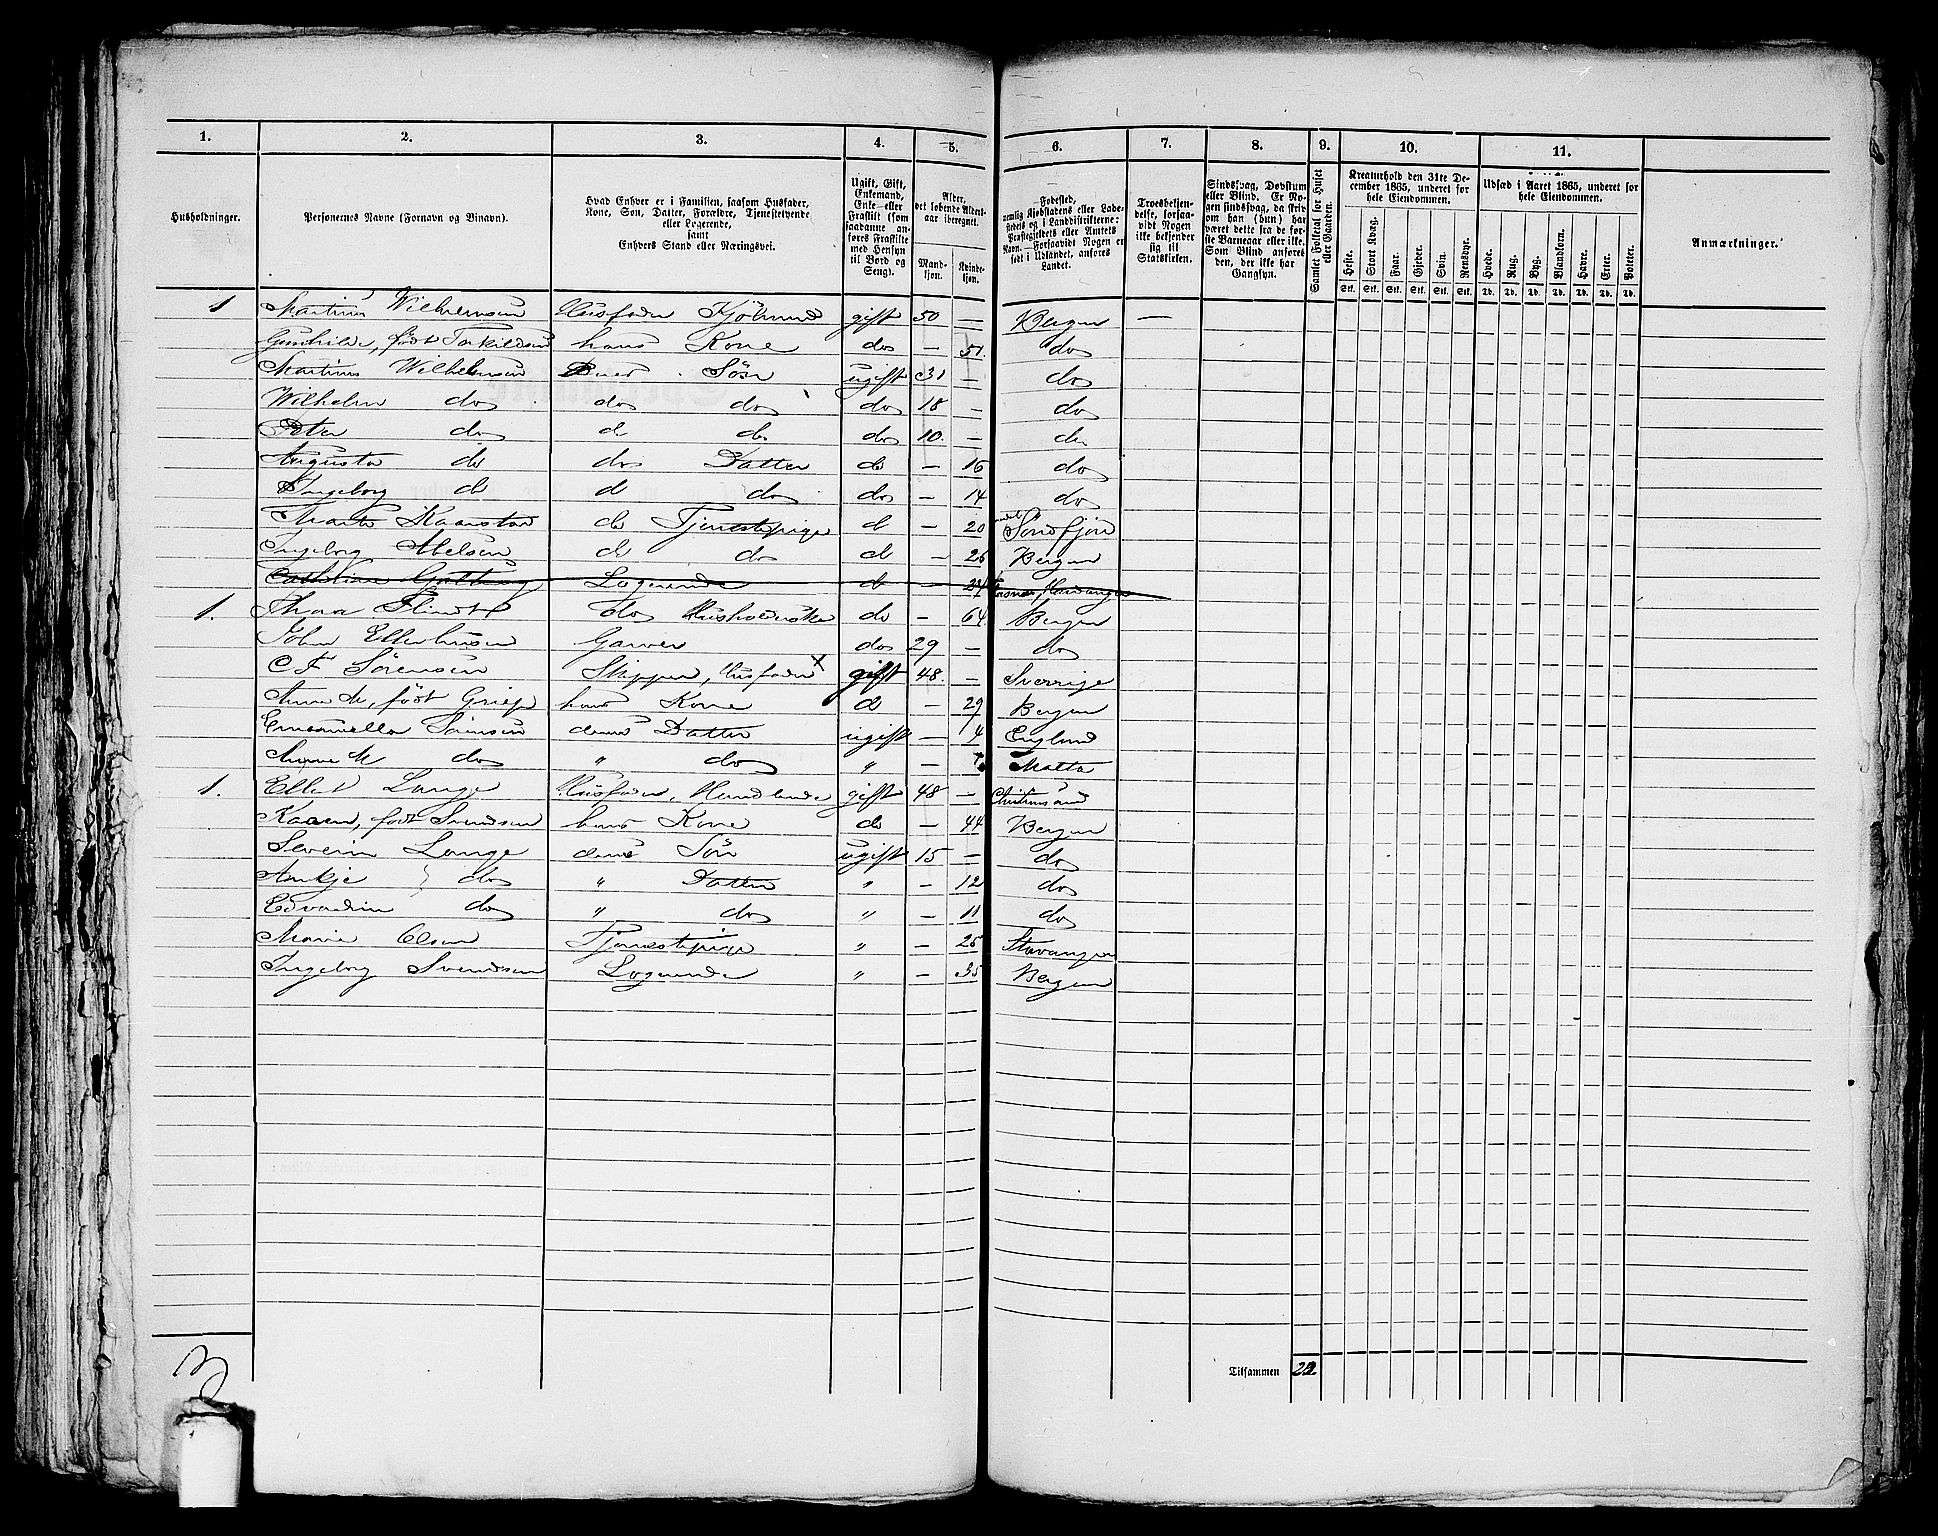 1. 2. 3. 4. 5. 6. 7. 8. 9. 10. 11.
Husholdninger.
Personernes Navne (Fornavn og Binavn).
Hvad Enhver er i Familien, saasom Husfader,
Kone, Søn, Datter, Forældre, Tjenestetyende
eller Logerende,
samt
Enhvers Stand eller Næringsvei.
Ugift, Gift,
Enkemand,
Enke- eller
Fraskilt (som
saadanne an-
føres Fraskilte
med Hensyn
til Bord og
Seng).
Alder,
det løbende Alders-
aar iberegnet.
Mand-
kjøn.
Kvinde-
kjøn.
Fødested,
nemlig Kjøbstadens eller Lade-
stedets og i Landdistrikterne:
Præstegjeldets eller Amtets
Navn. Forsaavidt Nogen er
født i Udlandet, anføres
Landet.
Troesbekjen-
delse, forsaa-
vidt Nogen
ikke bekjender
sig til
Statskirken.
Sindssvag, Døvstum
eller Blind. Er No-
gen sindssvag, da skri-
ves om han (hun) har
været dette fra de før-
ste Barneaar eller ikke.
Som Blind anføres
den, der ikke har
Gangsyn.
Samlet Folketal for Huset
eller Gaarden.
Kreaturhold den 31te De-
cember 1865, underet for
hele Eiendommen.
Heste. Stort Kvæg. Faar. Gjeder. Svin. Rensdyr.
Stk. Stk. Stk. Stk. Stk. Stk.
Udsæd i Aaret 1865, underet for
hele Eiendommen.
Hvede. Rug. Byg. Blandkorn. Havre. Erter. Poteter.
Td. Td. Td. Td. Td. Td. Td.
Anmærkninger.
1 Martinus Wilhelmsen Husfader Kjøbmand gift 50 — Bergen —
Gunhilde, født Torkildsen hans Kone do — 51. do
Martinus Wilhelmsen Søn ugift 31 — do
Wilhelm do do do do 18 — do
Peter do d do do 10. — do
Augusta do do Datter do — 16 do
Ingeborg d d do do — 14 do
Marte Kaarstad do Tjenestepige d — 20 Søndfjord
Ingeborg Abelsen do do d — 26 Bergen
Logerende d — Hardanger
1. do Husholderske do — 64. Bergen
John Ellerhusen Garver do 29 — do
C F Sørensen Skipper, Husfader x gift 48 — Sverrige
Anne M, født Griep hans Kone d — 29 Bergen
Emanuella Sørensen deres Datter ugift — 4 England
Anne M do " do " — Malta
1. Ellert Lange Husfader, Handlende gift 48 — Christianssand
Karen, født Svendsen hans Kone do — 44 Bergen
Severin Lange deres Søn ugift 15 — do
Ankje do " Datter " — 12 do
Edvardine do " do " — 11 do
Marie Olsen Tjenestepige " — 25 Stavanger
Ingeborg Svendsen Logerende " — 35 Bergen
3
Tilsammen 22